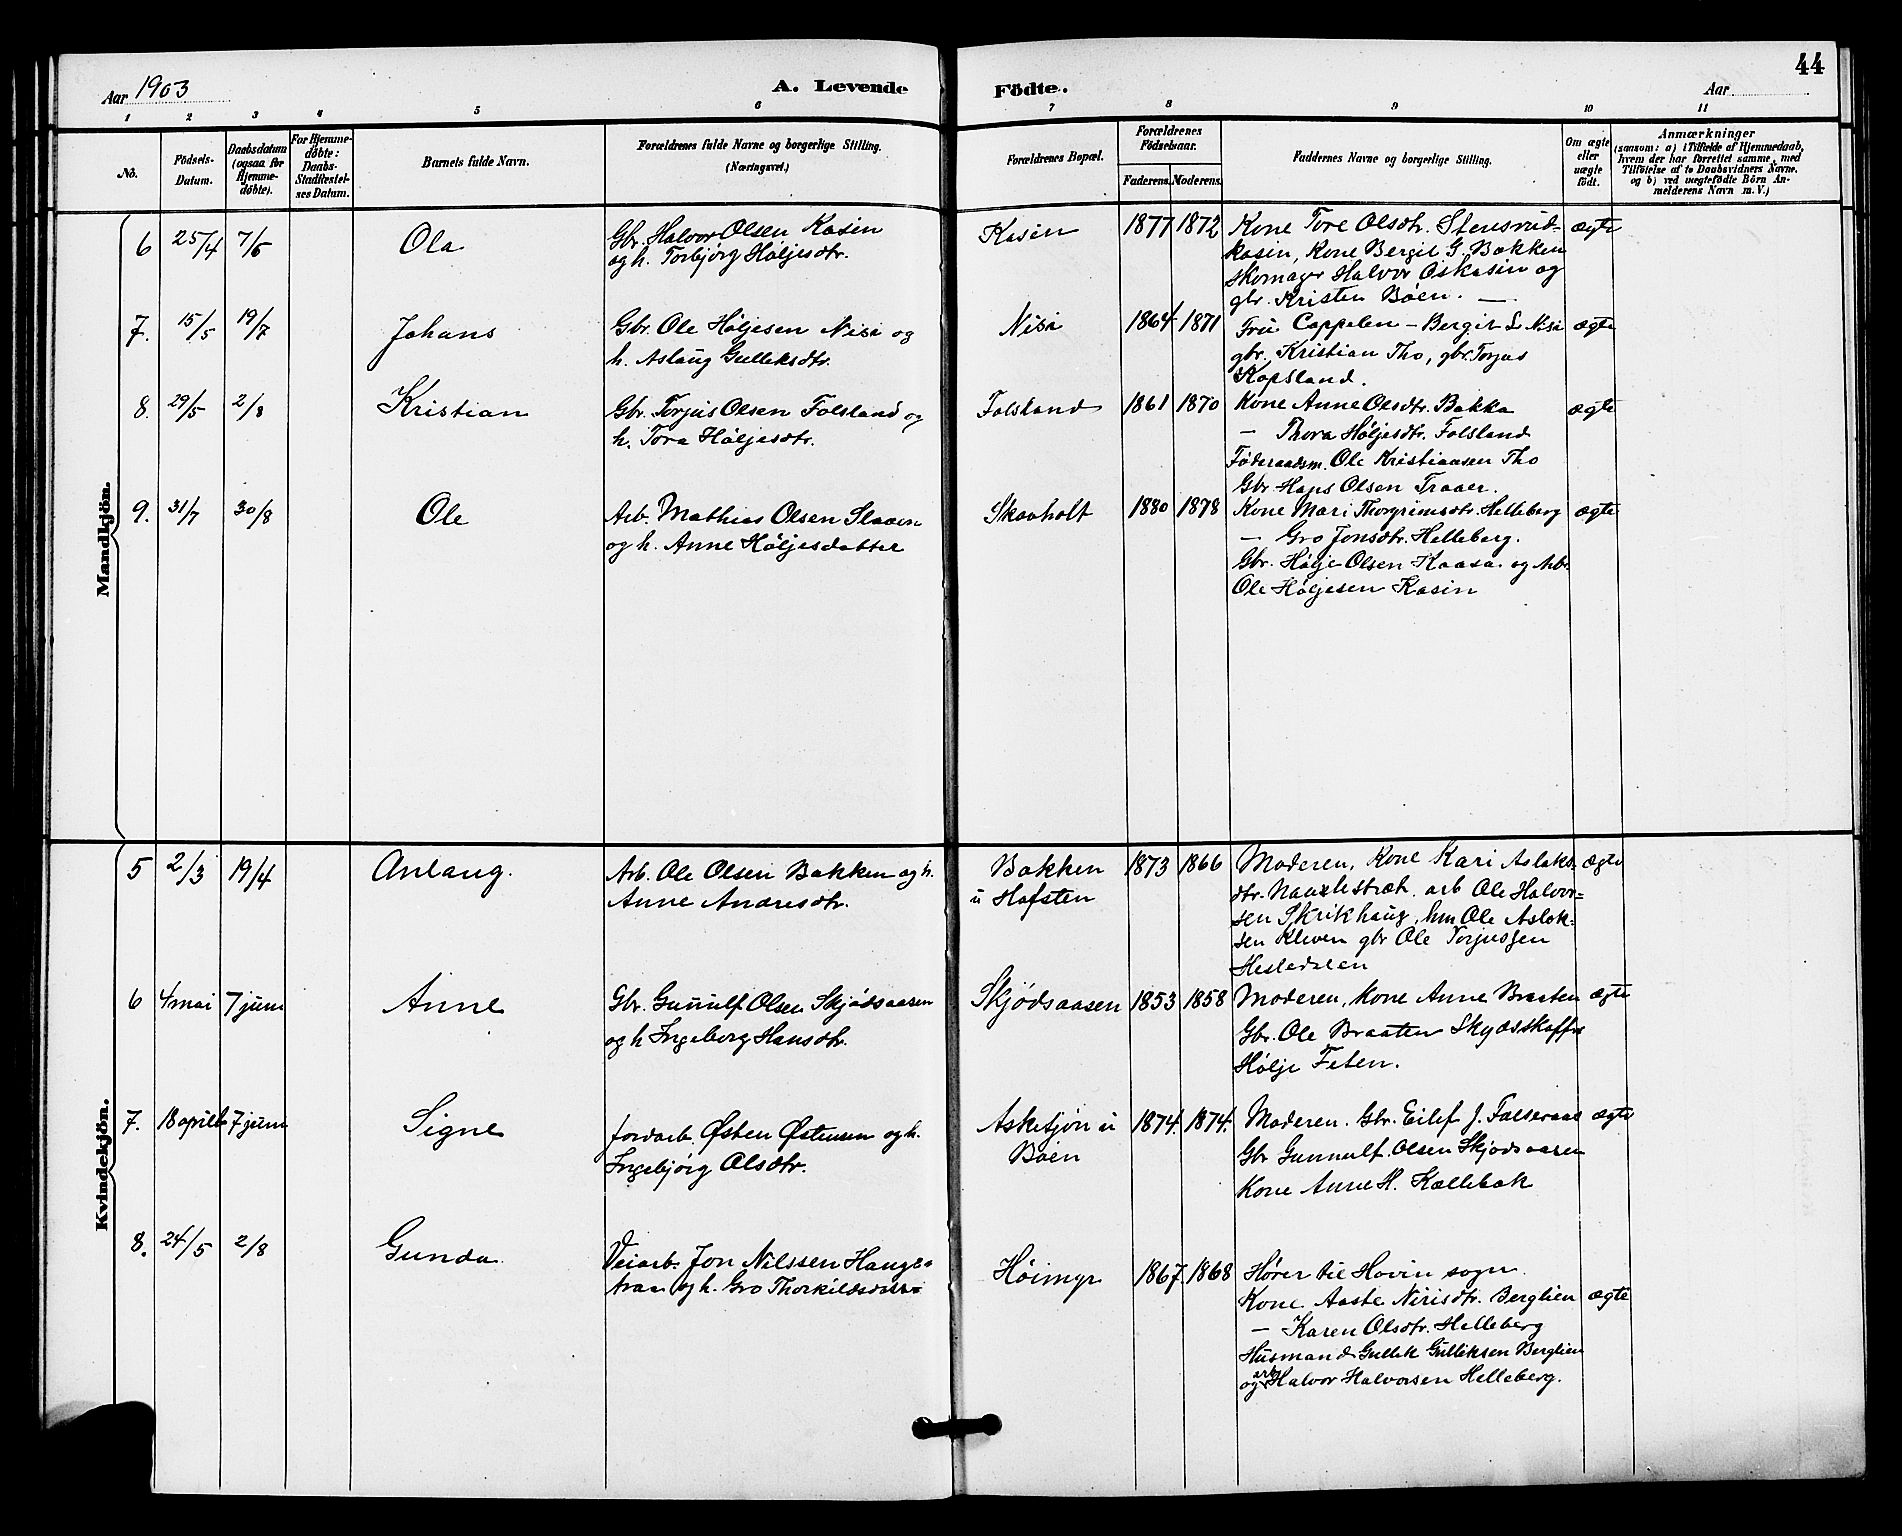 44
Aar 1903
A. Levende Födte.
Aar
1 2 3 4 5 6 7 8 9 10 11
No.
Födsels-Datum.
Daabsdatum (ogsaa for Hjemmedöbte).
For Hjemmedöbte: Daabs-Stadfæstelses Datum.
Barnets fulde Navn.
Forældrenes fulde Navne og borgerlige Stilling. (Næringsvei.)
Forældrenes Bopæl.
Forældrenes Födselsaar.
Faderens. Moderens.
Faddernes Navne og borgerlige Stilling.
Om ægte eller uægte födt.
Anmærkninger
(saasom: a) i Tilfælde af Hjemmedaab,
hvem der har forrettet samme, med
Tilföielse af to Daabsvidners Navne,
og b) ved uægtefödte Börn An-
melderens Navn m. V.)
Mandkjön.
6 25/4 7/6 Ola
Gbr. Halvor Olsen Kasin
og h. Torbjörg Höljesdtr.
Kasin 1877 1872
Kone Tore Olsdtr. Stensrud-
kasin, Kone Bergit G. Bakken
skomager Halvor Öskasin og
gbr. Kristen Böen. —
ægte
7. 15/5 19/7 Johans
Gbr. Ole Höljesen Nisi og
h. Aslaug Gulleksdtr.
Nisi 1864 1871
Fru Cappelen — Bergit L. Nisi
gbr. Kristian Tho, gbr. Torjus
Kopsland.
ægte
8. 29/5 2/8 Kristian
Gbr. Torjus Olsen Folsland og
h. Tora Höljesdtr.
Folsland 1861 1870
Kone Anne Olsdtr. Bakka
— Thora Höljesdtr. Folsland
Föderaadsm. Ole Kristiansen Tho
Gbr Hans Olsen Traaer.
ægte
9. 31/7 30/8 Ole
Arb. Mathias Olsen Slaaen
og h. Anne Höljesdatter
Skavholt 1880 1878
Kone Mari Thorgrimsdtr. Helleberg
— Gro Jonsdtr. Helleberg.
Gbr. Hölje Olsen Kaasa og Arb.
Ole Höljesen Kasin
ægte
Kvindekjön.
5 2/3 19/4 Anlaug.
Arb. Ole Olsen Bakken og h.
Anne Andresdtr.
Bakken
u Hafsten
1873 1866
Moderen, Kone Kari Aslaks-
dtr. arb Ole Halvor-
sen Skrikhaug, hm Ole Aslak-
sen Kleven gbr Ole Torjussen
Hesledalen
ægte
6 4 mai 7 juni Anne
Gbr. Gunnulf Olsen Skjödsaasen
og h Ingeborg Hansdtr.
Skjödsaasen 1853 1858
Moderen, Kone Anne Braaten
Gbr. Ole Braaten Skydsskaffer
Hölje Feten.
ægte
7. 18 april 7 juni Signe
Jordarb. Østen Østensen og h.
Ingebjörg Olsdtr.
Asketjön u
Böen
1874. 1874.
Moderen. Gbr. Eilef J. Falseraas
Gbr Gunnulf. Olsen Skjödsaasen
Kone Anne H. Kællebæk
ægte
8. 24/5 2/8 Gunda
Veiarb. Jon Nilssen Hauge-
traa og h. Gro Thorkildsdtr.
Höimyr 1867. 1868
Hører til Hovin sogn.
Kone Aaste Nirisdtr. Berglien
— Karen Olsdtr. Helleberg
Husmand Gullik Gulliksen Berglien
og arb. Halvor Halvorsen Helleberg.
ægte